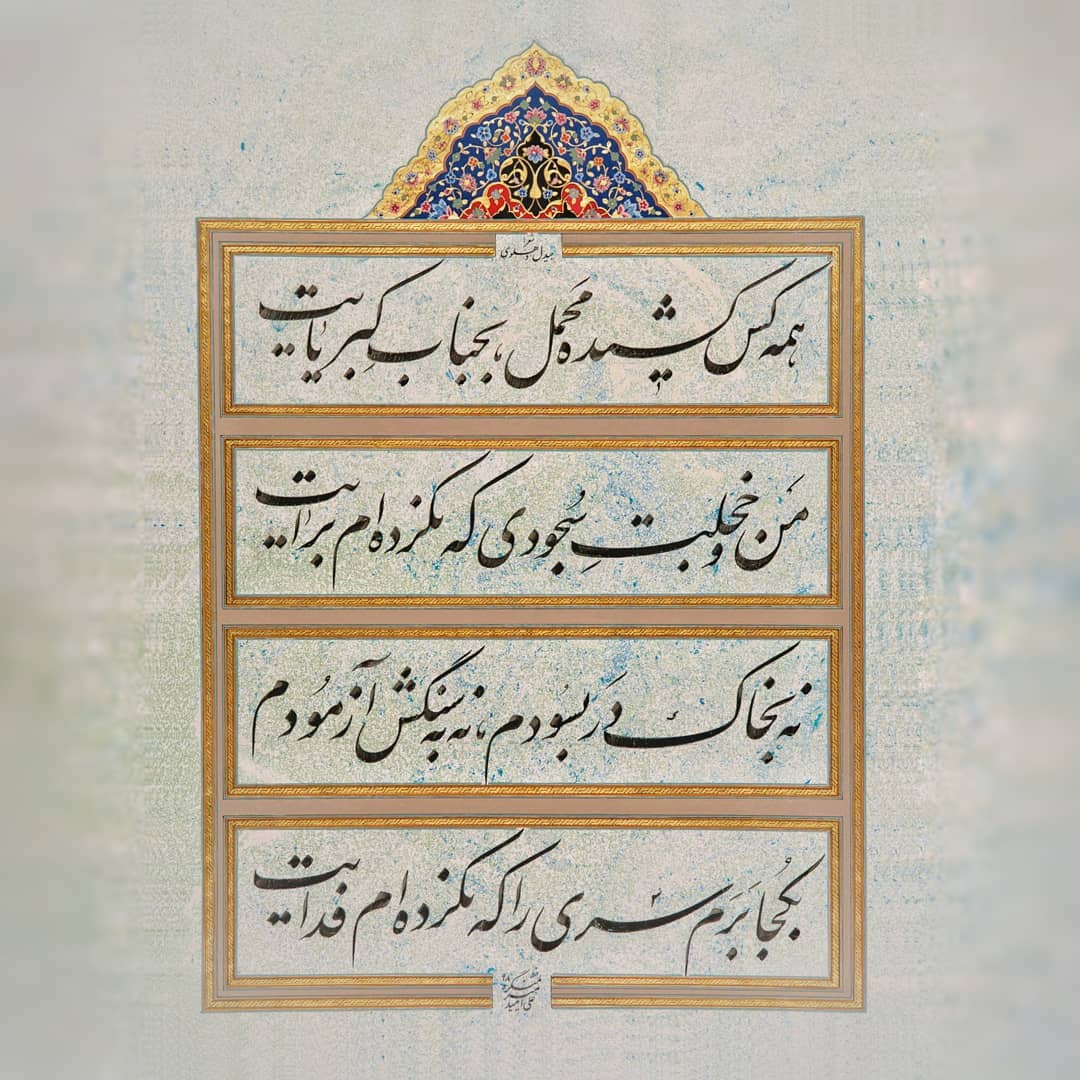 شعر بیدل دهلوی
همه کس کشیده محمل، بجناب کبریایت
من و خجلتِ سُجودی که نکرده‌ام برایت
نه بخاک در بسُودم، نه به سنگش آزمودم
بکُجا بَرَم سری را که نکرده‌ام فدایت
علی امید